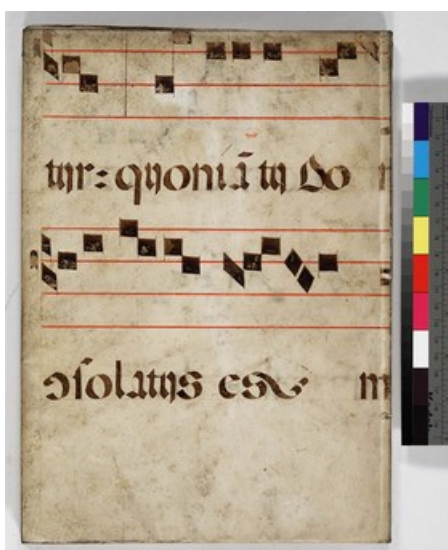 tur: quoniã tu Do
ↄsolatus es m